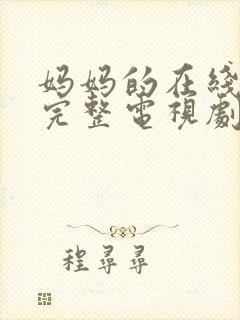 妈妈的在线
完整电视剧
程寻寻